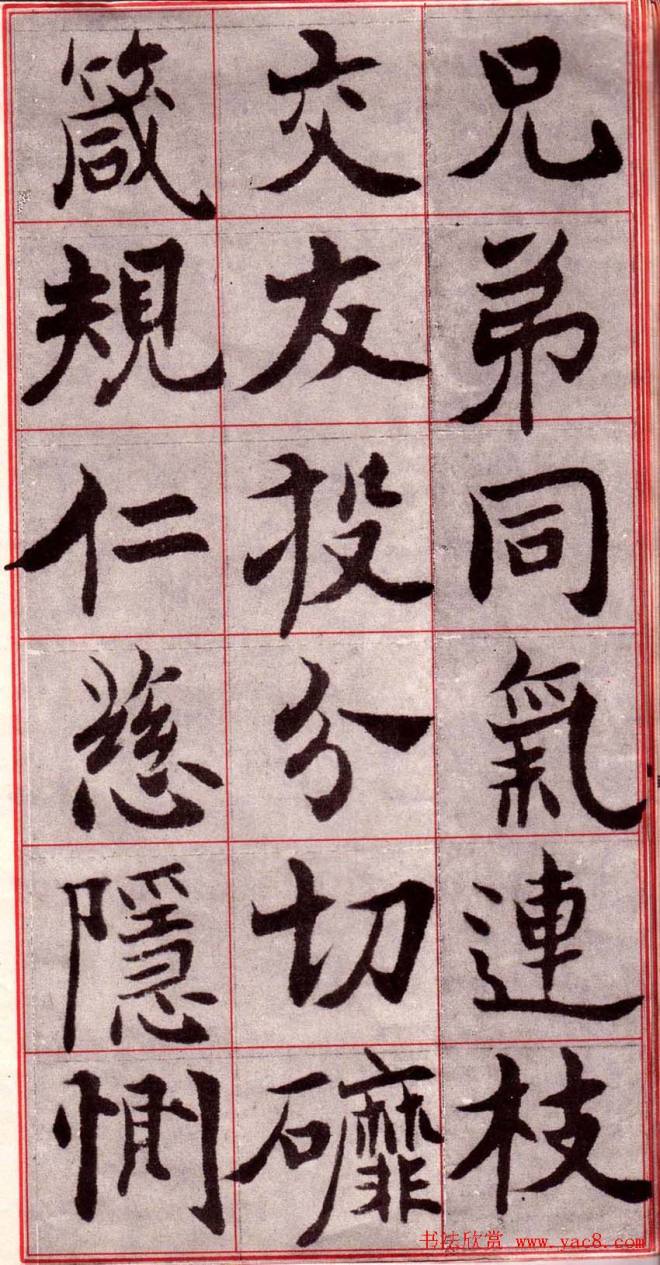 兄弟同氣連枝
交友投分切䃺
箴規仁慈隱惻
书法欣赏 www.yac8.com